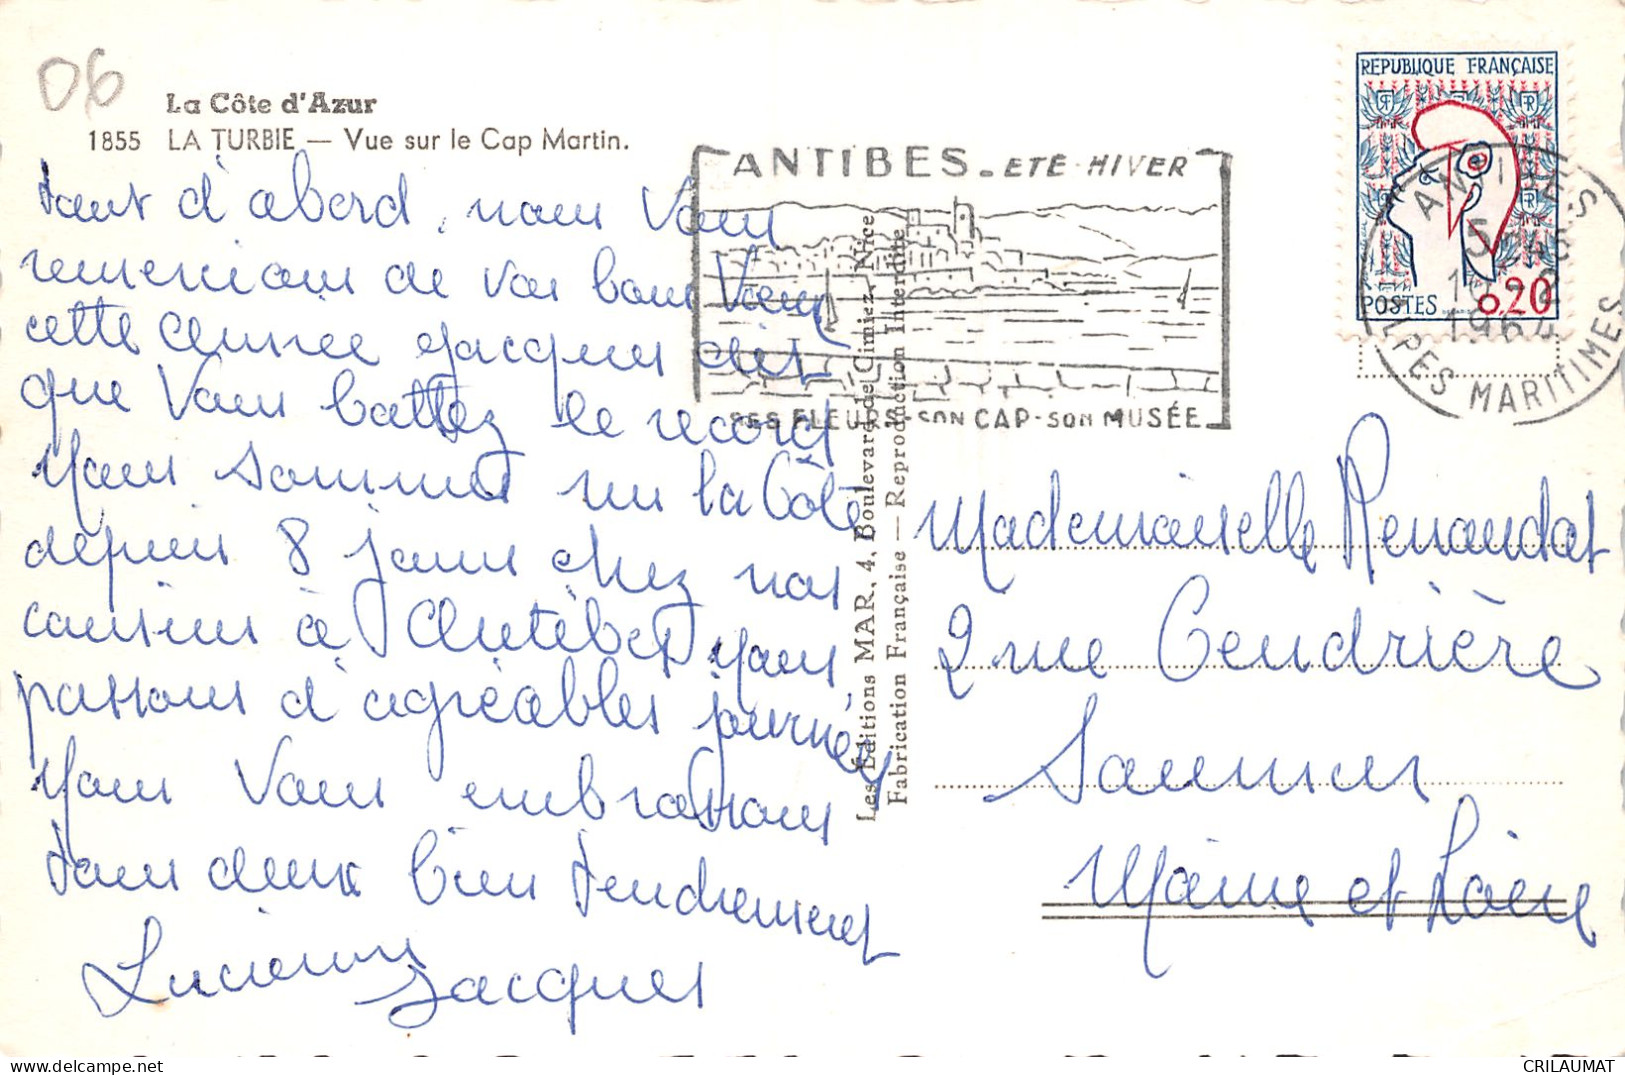 06
La Côte d'Azur
1855 LA TURBIE — Vue sur le Cap Martin.
tout d'abord, nous vous
remercions de vos bons vœux
cette année Jacques dit
que vous battez le record
Nous sommes sur la Côte
depuis 8 jours chez nos
cousins à Antibes nous
passons d'agréables journées
Nous vous embrassons
tous deux bien tendrement
Lucienne
Jacques
Les Editions MAR, 4, Boulevard de Cimiez, Nice
Fabrication Française — Reproduction Interdite
ANTIBES - ETE - HIVER
SES FLEURS - SON CAP - SON MUSÉE
REPUBLIQUE FRANÇAISE
POSTES 0,20
ANTIBES
1964
ALPES MARITIMES
Mademoiselle Renaudat
2 rue Cendrière
Saumur
Maine et Loire
CRILAUMAT